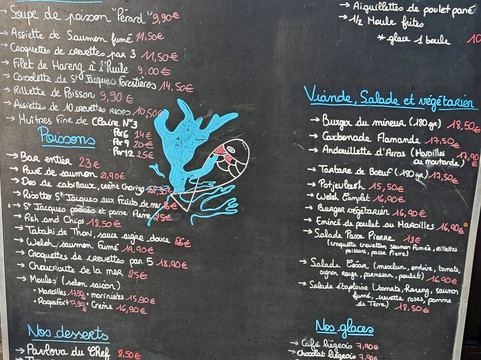 Soupe de poisson "Pérard" 9,90€
→ Assiette de Saumon fumé 11,50€
→ Croquettes de crevettes par 3 11,50€
→ Filet de Hareng à l'Huile 9.00€
→ Cassolette de St Jacques Forestières 14,50€
→ Rillette de Poisson 9,90€
→ Assiette de 10 crevettes roses 10,50€
→ Huîtres Fine de Claire N°3
Par 6 14€
Par 9 20€
Par 12 25€
Poissons
→ Bar entier 23€
→ Pavé de saumon 21,90€
→ Dos de cabillaud, crème chorizo
→ Risotto St Jacques aux Fruits de mer
→ St Jacques et panne Purée 25€
→ Fish and Chips 19,50€
→ Tataki de Thon, sauce aigre douce 26€
→ Welsh saumon fumé 19,90€
→ Croquettes de crevettes par 5 18,90€
→ Choucroute de la mer 25€
→ Moules (selon saison)
• Maroilles 17,90 • marinières 15,90€
• Roquefort 17,90 • Crème 16,90€
Nos desserts
→ Pavlova du Chef 8.50€
→ Aiguillettes de poulet pané
→ 1/2 Moule frites
* glace 1 boule 10
Viande, Salade et végétarien
→ Burger du mineur (180gr) 18,50€
→ Carbonade Flamande 17,50€
→ Andouillette d'Arras (Maroilles ou moutarde) 17,90€
→ Tartare de Boeuf (180gr) 17,50€
→ Potjevleesh 15,50€
→ Welsh Complet 16,90€
→ Burger végétarien 16,90€
→ Emincé de poulet au Maroilles 16,90€
→ Salade Passe Pierre 18€
(croquette crevettes, saumon fumée, rillettes
poissons, passe Pierre)
→ Salade (mesclun, endive, tomate,
oignon rouge, parmesan, poulet) 16,90€
→ Salade étaploise (tomate, Hareng, saumon
fumé, crevette roses, pomme
de Terre) 18,50€
Nos glaces
→ Café liégeois 7,90€
→ chocolat liégeois 7,90€